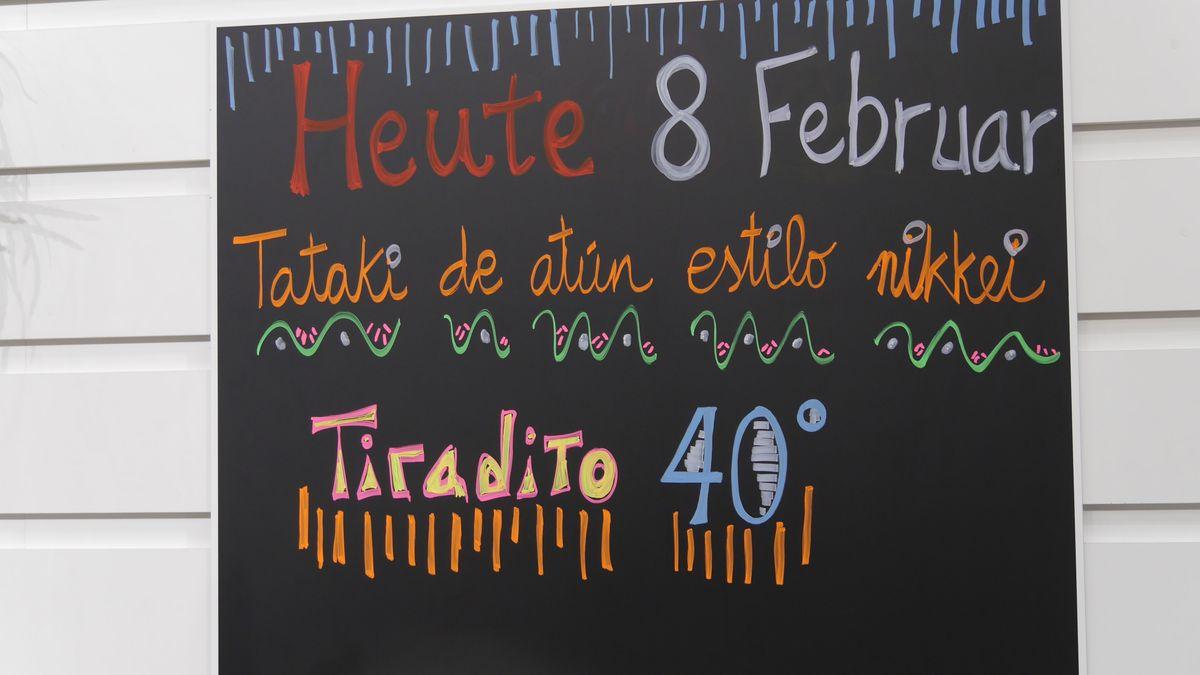 Heute 8 Februar
Tataki de atún estilo nikkei
Tiradito 40°